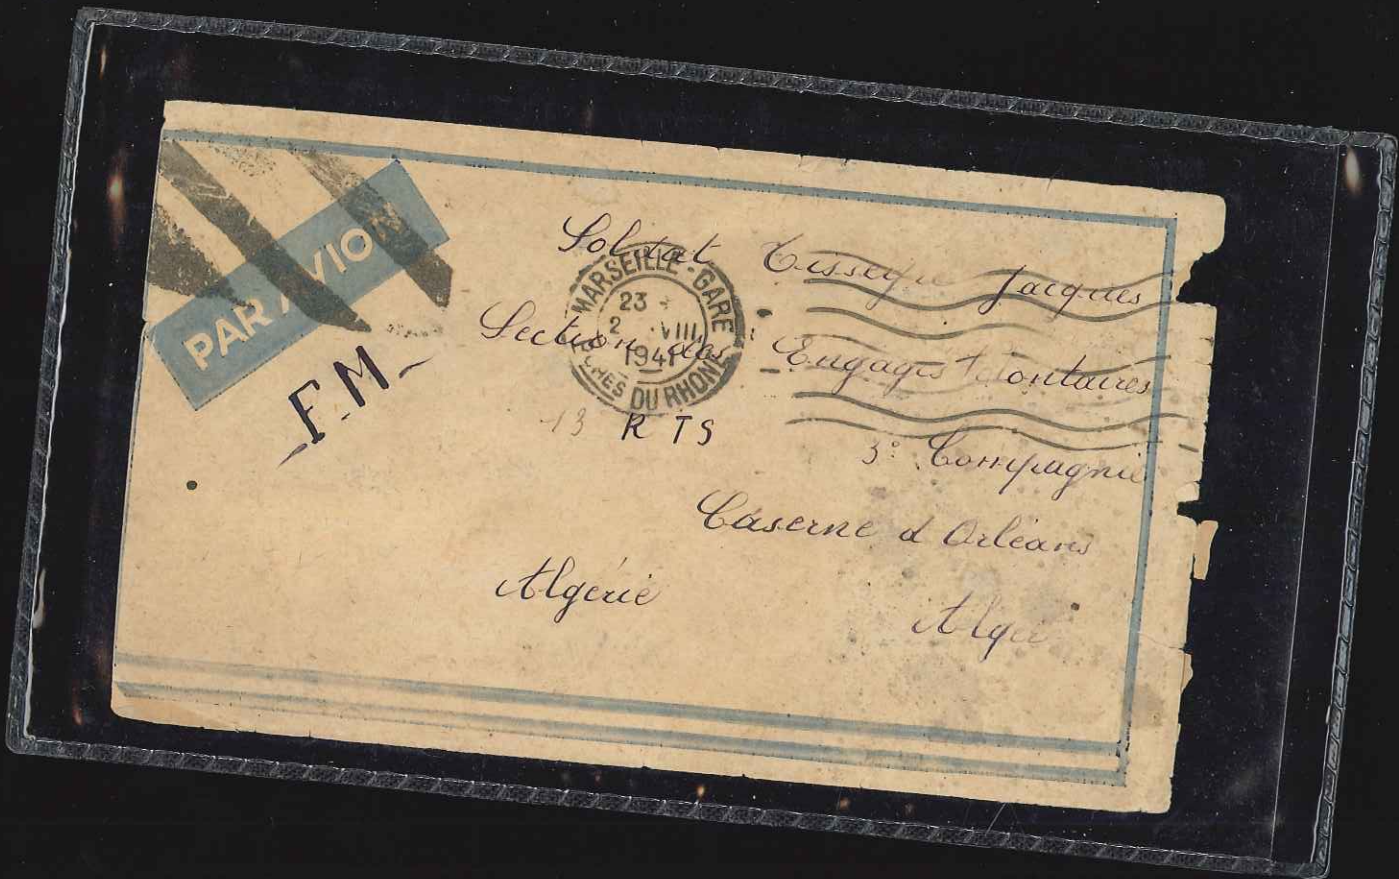 PAR AVION
F.M.
MARSEILLE-GARE
23
2 VIII
1941
BCHES DU RHONE
Soldat Jacques
Section des Engagés Volontaires
13 R T S
3e Compagnie
Caserne d'Orléans
Algérie
Alger